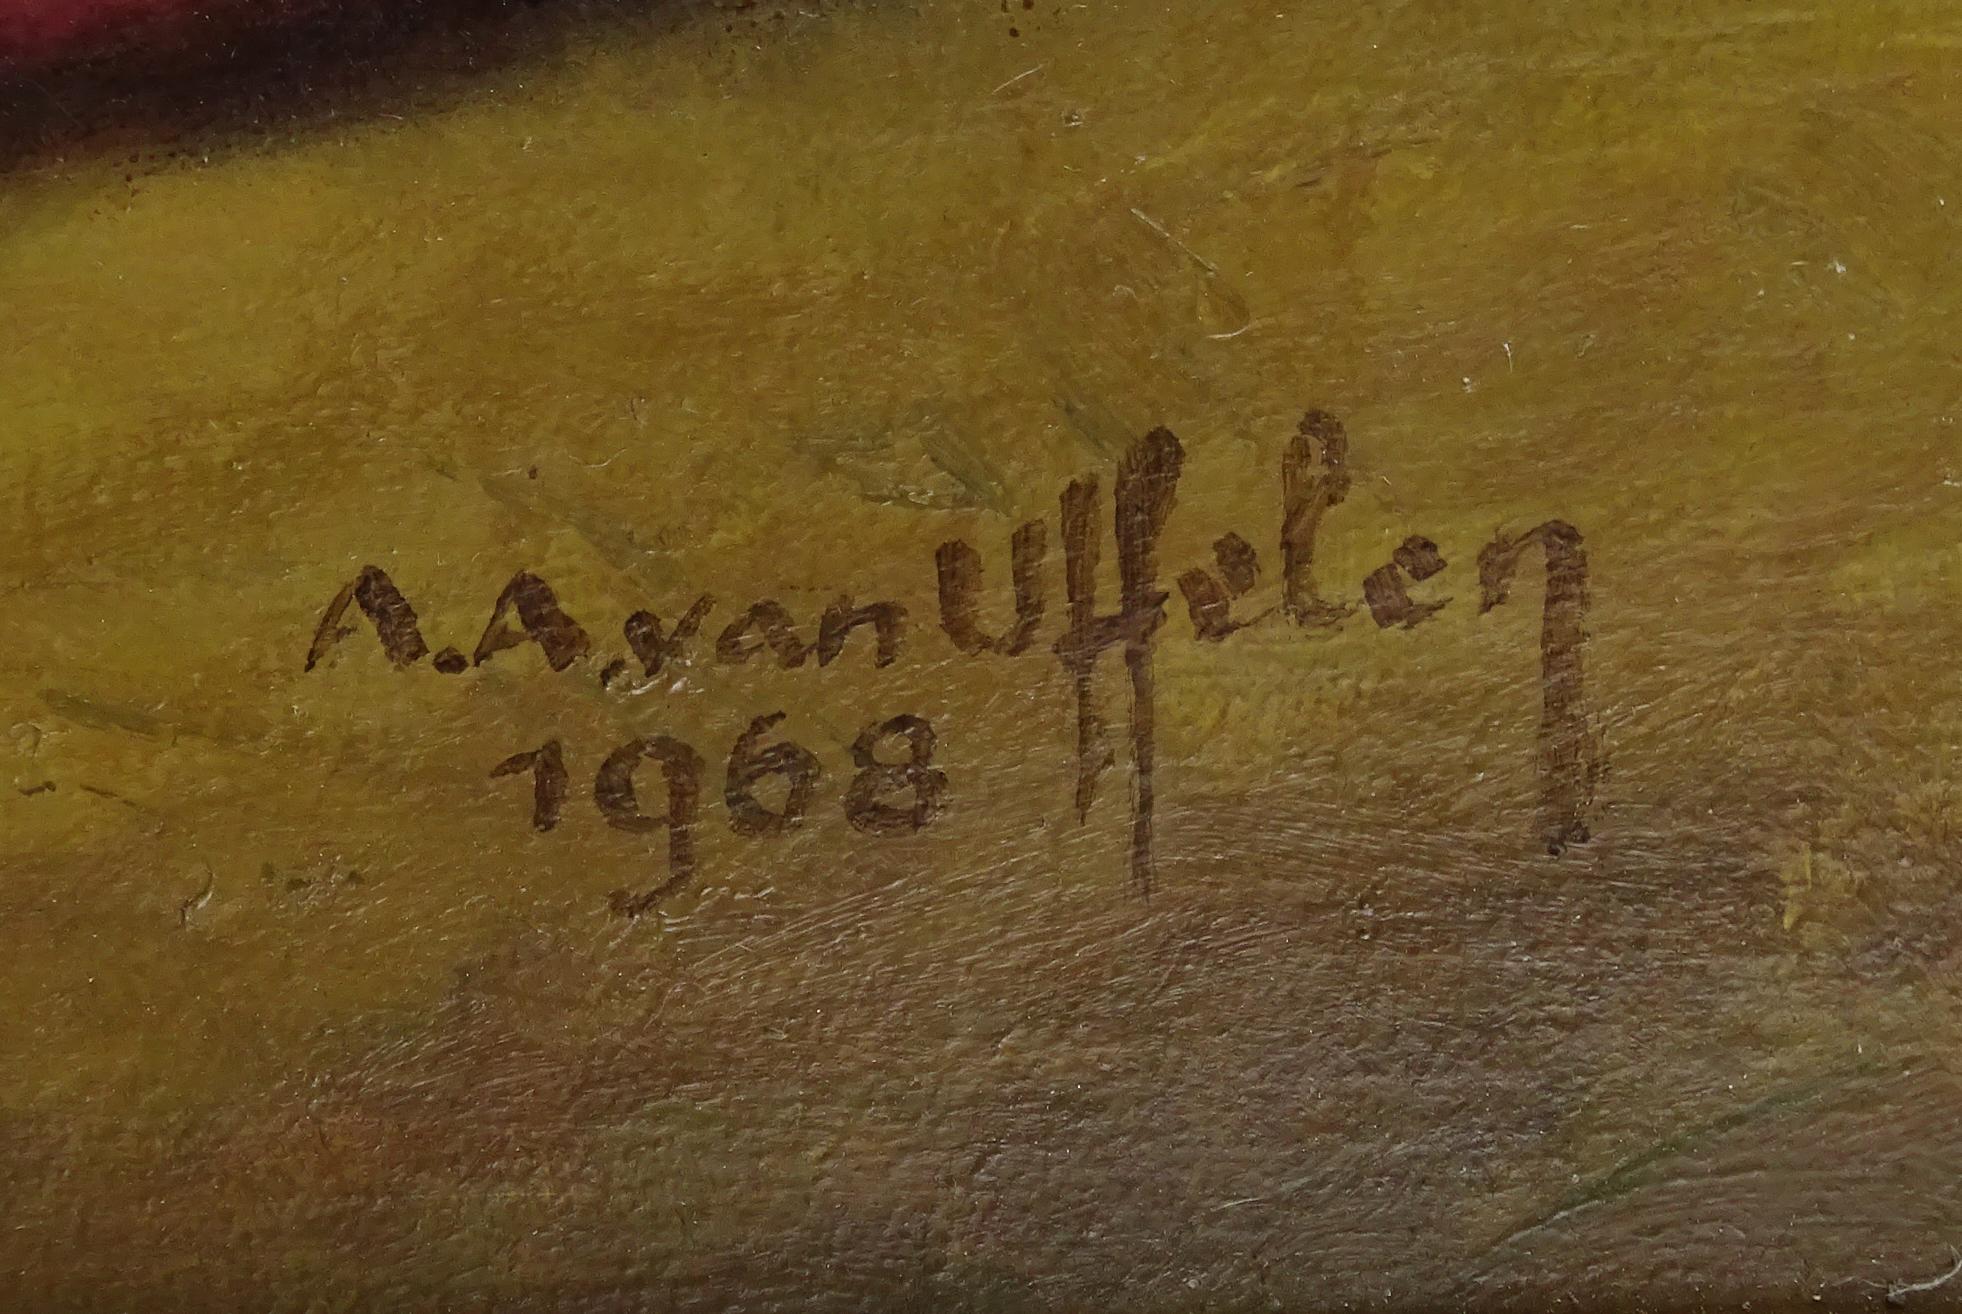 A.A.van Uffelen
1968